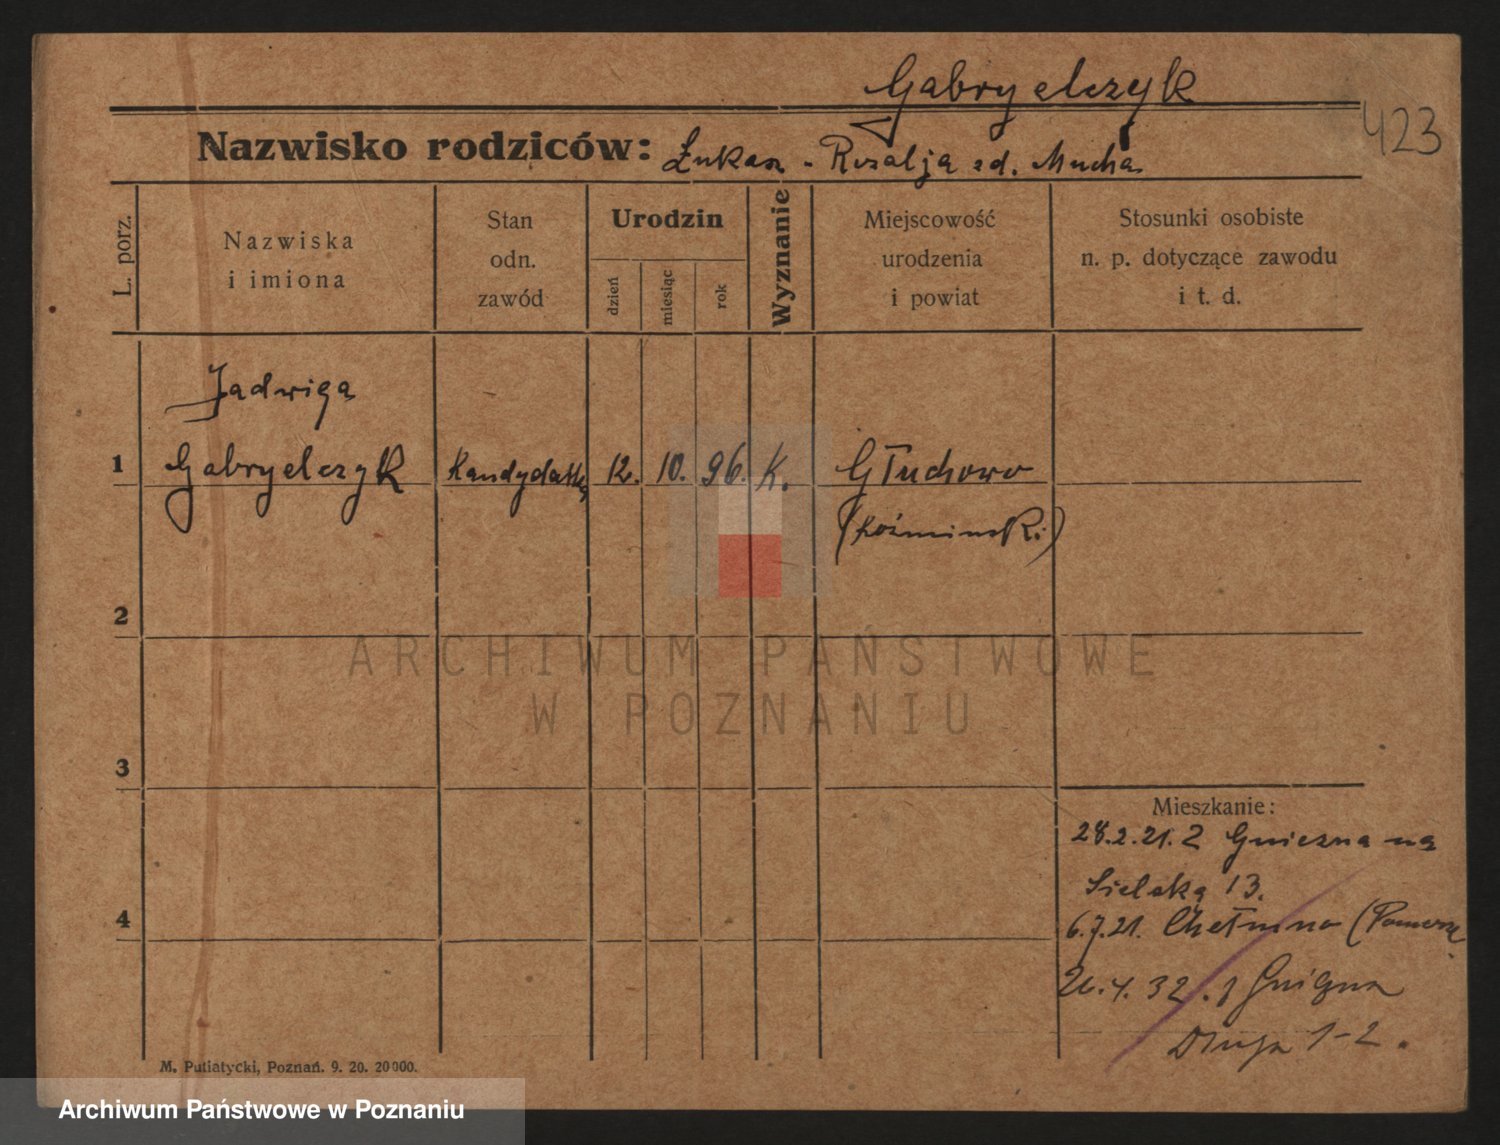 Gabryelczyk
423
Nazwisko rodziców: Łukasz - Rozalja zd. Mucha
L. porz.
Nazwiska
i imiona
Stan
odn.
zawód
Urodzin
dzień
miesiąc
rok
Wyznanie
Miejscowość
urodzenia
i powiat
Stosunki osobiste
n. p. dotyczące zawodu
i t. d.
Jadwiga
1 Gabryelczyk Kandydatka 12. 10. 96. K. Głuchowo
(Koźminski)
2
ARCHIWUM PAŃSTWOWE
W POZNANIU
3
Mieszkanie:
28.2.21. Z Gniezna na
Sielską 13.
4
6.7.21. Chełmno (Pomorze
4. 32.
1-2.
M. Putiatycki, Poznań. 9. 20. 20000.
Archiwum Państwowe w Poznaniu